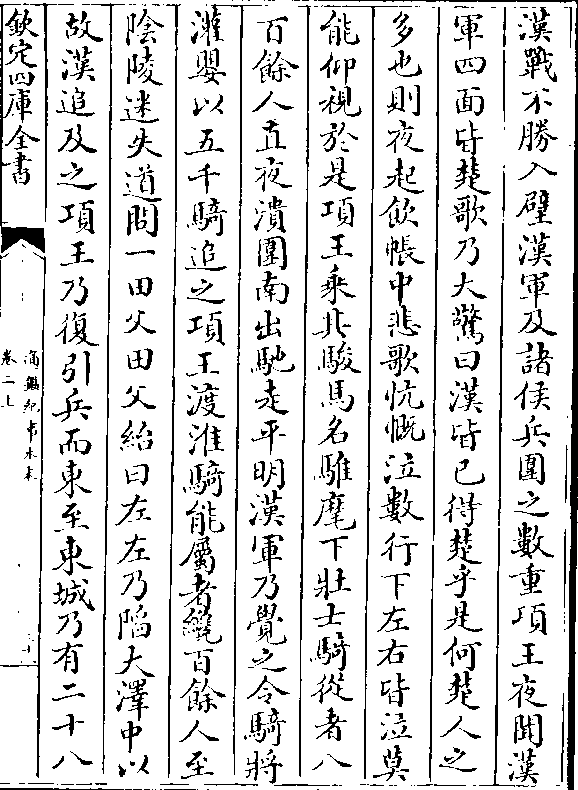 漢戰不勝入壁漢軍及諸侯兵圍之數重項王夜聞漢
軍四面皆楚歌乃大驚曰漢皆已得楚乎是何楚人之
多也則夜起飲帳中悲歌忼慨泣數行下左右皆泣莫
能仰視於是項王乘其駿馬名騅麾下壯士騎從者八
百餘人直夜潰圍南出馳走平明漢軍乃覺之令騎將
灌嬰以五千騎追之項王渡淮騎能屬者纔百餘人至
陰陵迷失道問一田父田父紿曰左左乃陷大澤中以
故漢追及之項王乃復引兵而東至東城乃有二十八
欽定四庫全書
通鑑紀事本末
卷二上